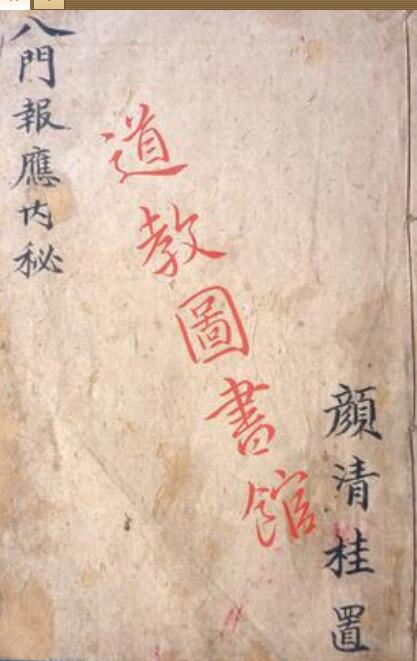 顔清桂置
道教圖書館
八門報應内秘